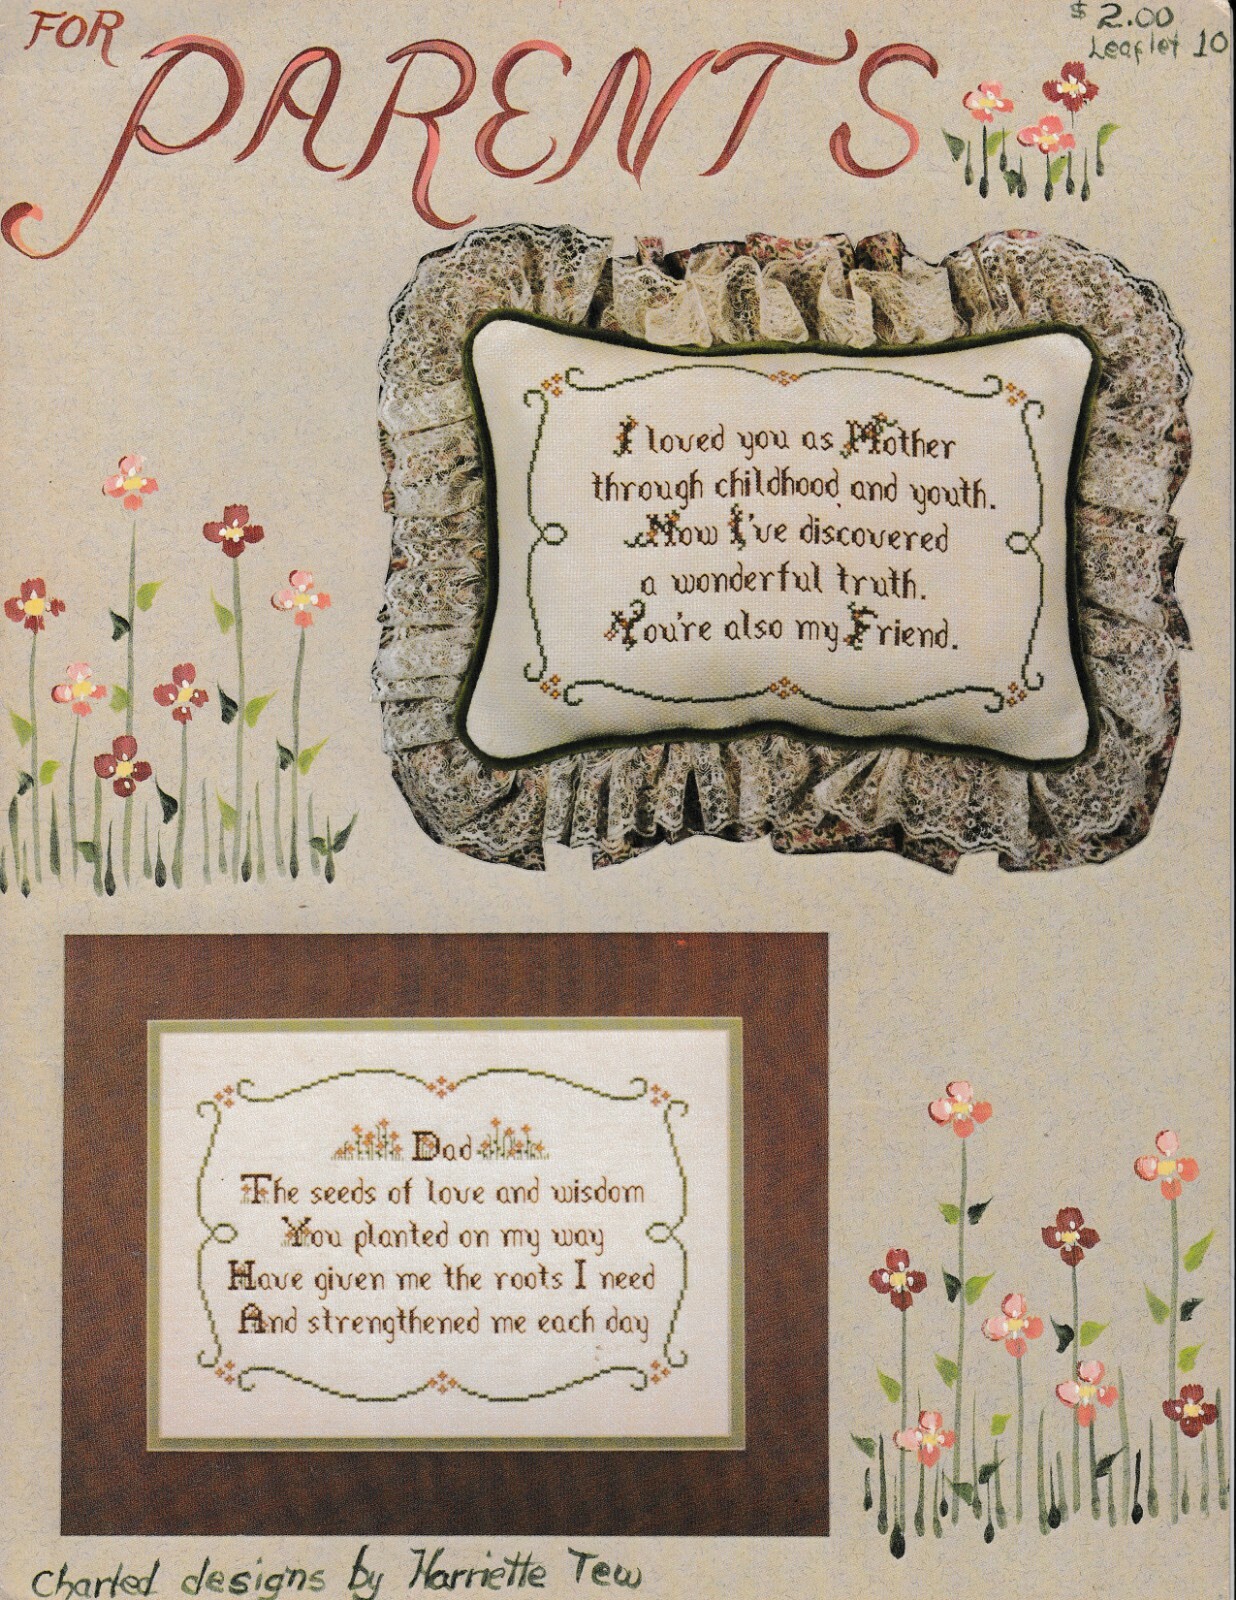 FOR
PARENTS
$2.00
Leaflet 10
I loved you as Mother
through childhood and youth.
Now I've discovered
a wonderful truth.
You're also my Friend.
Dad
The seeds of love and wisdom
You planted on my way
Have given me the roots I need
And strengthened me each day
Charted designs by Harriette Tew